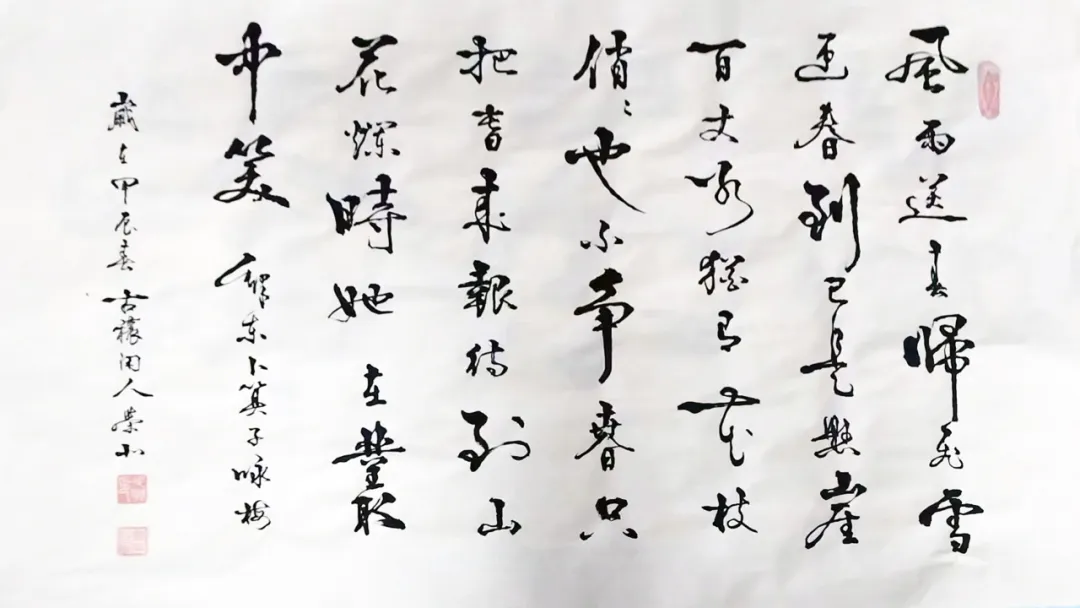 風雨送春歸飛雪
迎春到已是懸崖
百丈冰猶有花枝
俏俏也不争春只
把春来報待到山
花爛時她在叢
中笑 毛澤東卜算子咏梅
歲在甲辰春 古穰闲人榮